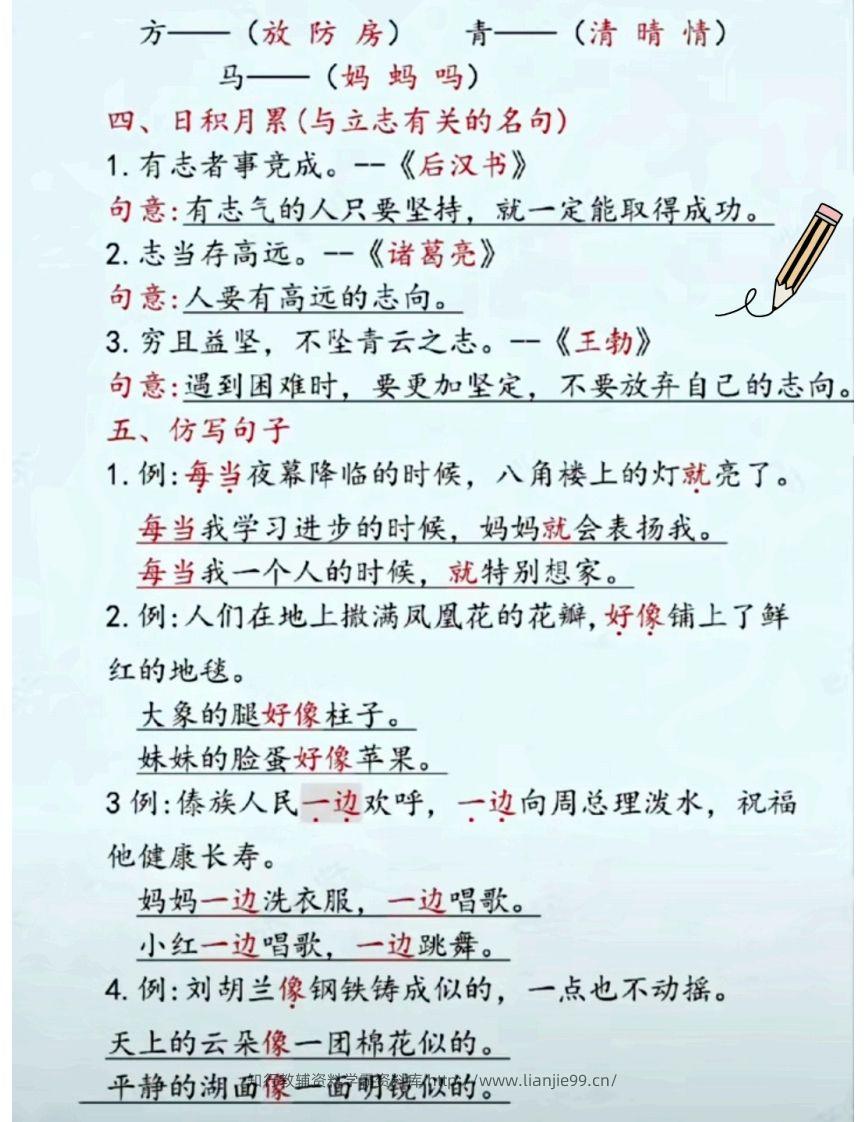 方——（放 防 房） 青——（清 晴 情）
马——（妈 蚂 吗）
四、日积月累(与立志有关的名句)
1.有志者事竞成。--《后汉书》
句意:有志气的人只要坚持，就一定能取得成功。
2.志当存高远。--《诸葛亮》
句意:人要有高远的志向。
3.穷且益坚，不坠青云之志。--《王勃》
句意:遇到困难时，要更加坚定，不要放弃自己的志向。
五、仿写句子
1.例:每当夜幕降临的时候，八角楼上的灯就亮了。
每当我学习进步的时候，妈妈就会表扬我。
每当我一个人的时候，就特别想家。
2.例:人们在地上撒满凤凰花的花瓣,好像铺上了鲜
红的地毯。
大象的腿好像柱子。
妹妹的脸蛋好像苹果。
3例:傣族人民一边欢呼，一边向周总理泼水，祝福
他健康长寿。
妈妈一边洗衣服，一边唱歌。
小红一边唱歌，一边跳舞。
4.例:刘胡兰像钢铁铸成似的，一点也不动摇。
天上的云朵像一团棉花似的。
平静的湖面像一面明镜似的。
知行教辅资料学霸资料库 http://www.lianjie99.cn/